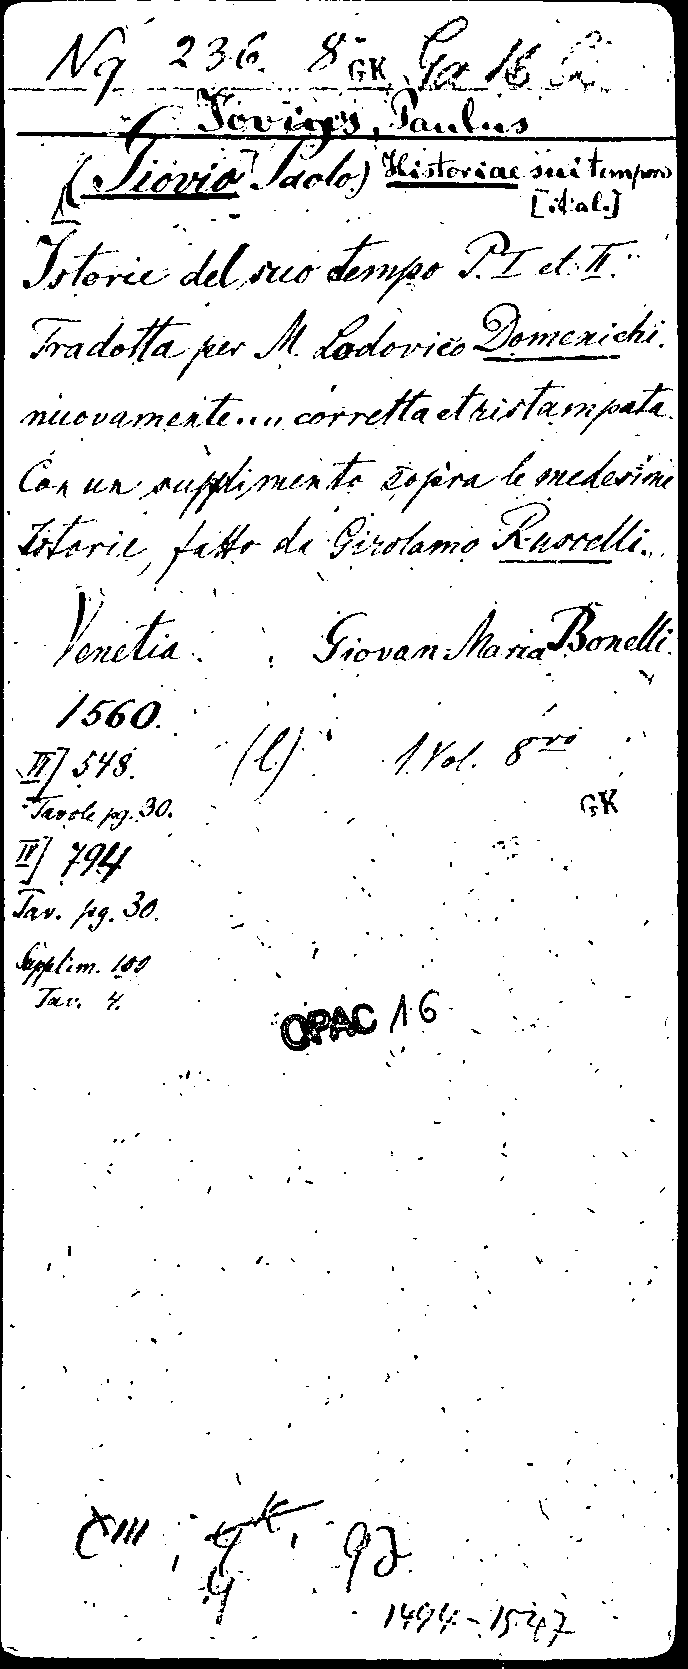 Nq 236. 8° GK Ga 16
Jovius, Paulus
(Giovio Paolo) Historiae sui temporis
[ital.]
Istorie del suo tempo P. I et II.
Tradotta per M. Lodovico Domenichi.
nuovamente.... corretta et ristampata
Con un supplimento sopra le medesime
Istorie, fatto da Girolamo Ruscelli.
Venetia. Giovan Maria Bonelli.
1560.
(l.) 1 Vol. 8vo
548.
Tavole pg. 30.
GK
794
Tav. pg. 30.
Supplim. 100
Tav. 4.
OPAC 16
1494-1547